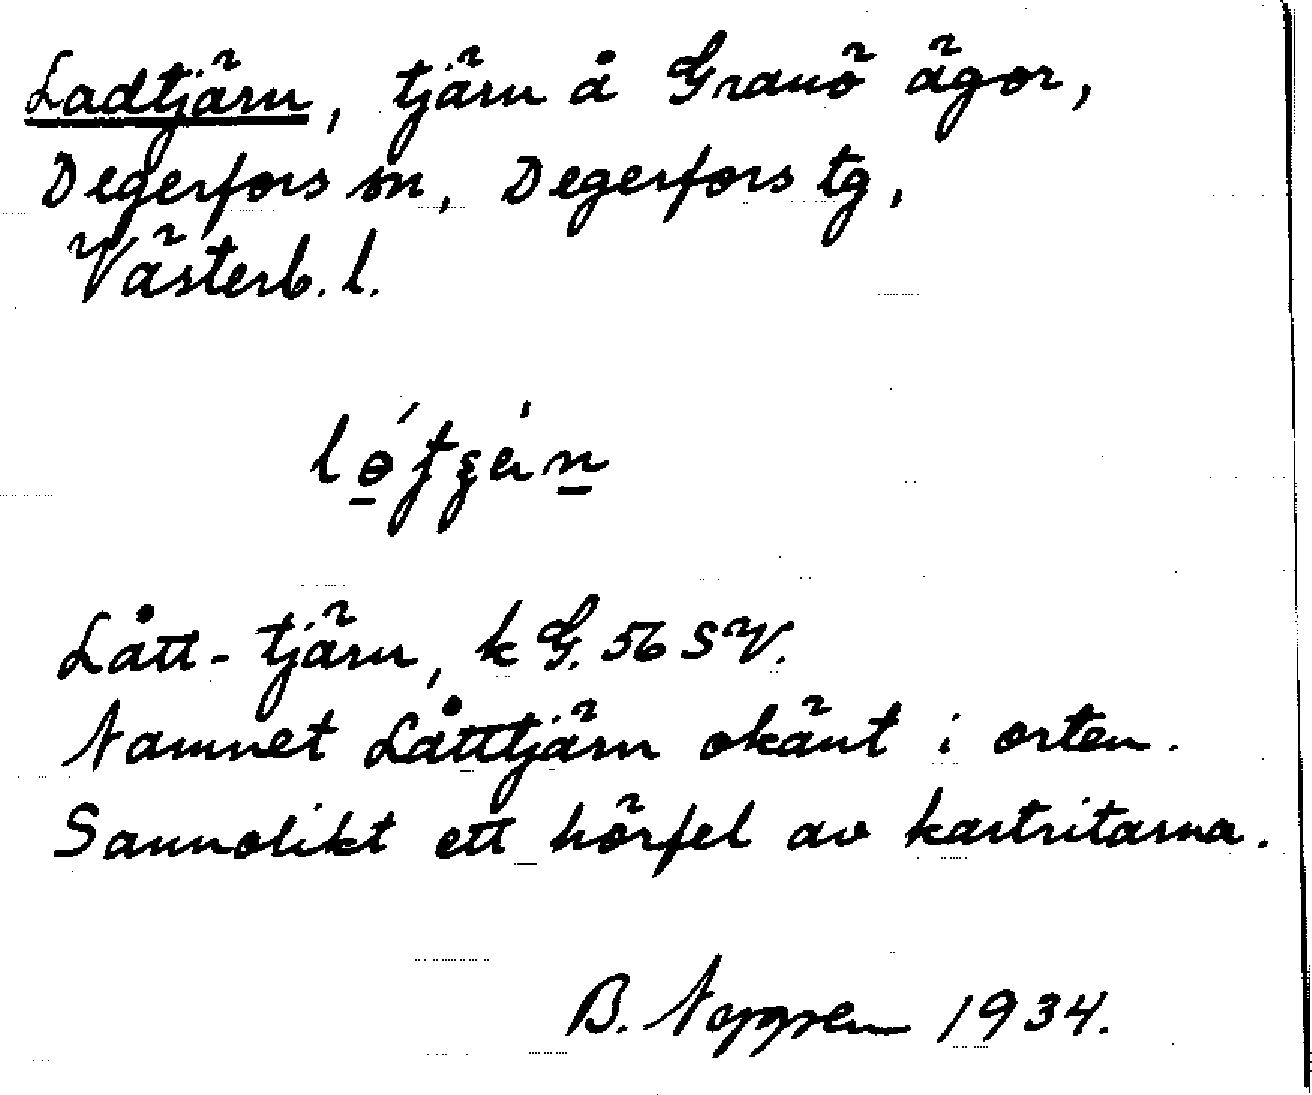 Ladtjärn, tjärn å Granö ägor,
Degerfors sn, Degerfors tg,
Västerb. l.
Lått-tjärn, k G. 56 SV.
Namnet Låttjärn okänt i orten.
Sannolikt ett hörfel av kartritarna.
B. Nygren 1934.